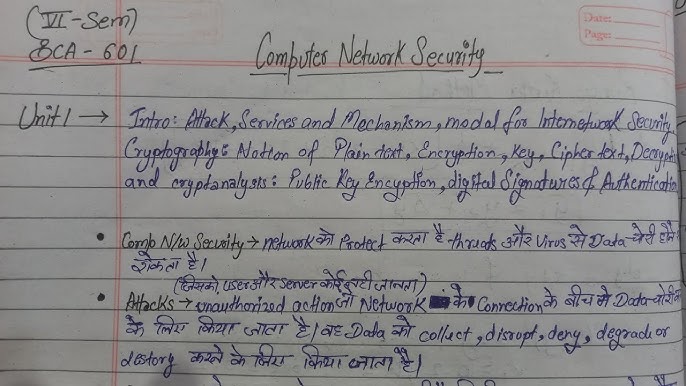 (VI-Sem)
BCA-601
Date:
Page:
Computer Network Security
Unit 1 → Intro: Attack, Services and Mechanism, modal for Internetwork Security
Cryptography: Notion of Plain text, Encryption, Key, Cipher text, Decrypti
and cryptanalysts: Public Key Encyption, digital Signatures & Authentication
• Comp N/w Security → network को Protect करता है threads और Virus से Data चोरी होने से
रोकता है।
(जिसको user और server कोई नहीं जानता)
• Attacks → unauthorized action जो Network के Connection के बीच मे Data चोरी क
के लिए किया जाता है। वह Data को collect, disrupt, deny, degrade or
destory करने के लिए किया जाता है।